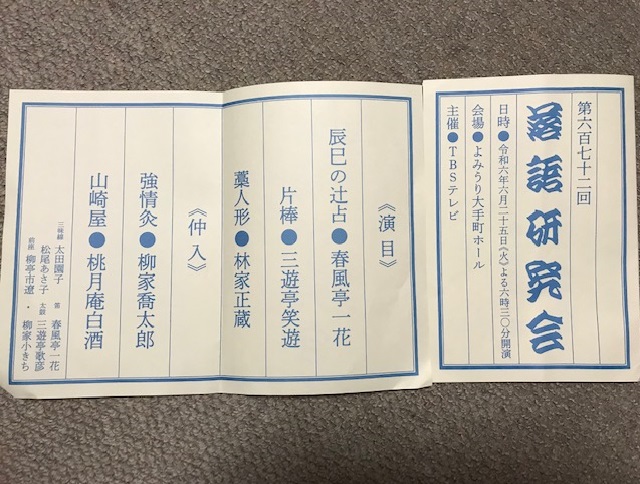 第六百七十二回
落語研究会
日時●令和六年六月二十五日《火》よる六時三〇分開演
会場●よみうり大手町ホール
主催●TBSテレビ
《演目》
辰巳の辻占●春風亭一花
片棒●三遊亭笑遊
藁人形●林家正蔵
《仲入》
強情灸●柳家喬太郎
山崎屋●桃月庵白酒
三味線 太田園子 笛 春風亭一花
松尾あさ子 太鼓 三遊亭歌彦
前座 柳亭市遼・柳家小きち